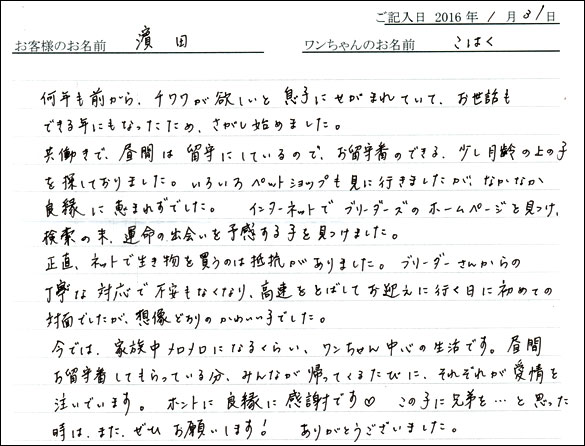 ご記入日 2016年 1月 31日
お客様のお名前 濱田 ワンちゃんのお名前 こはく
何年も前から、チワワが欲しいと息子にせがまれていて、お世話も
できる年にもなったため、さがし始めました。
共働きで、昼間は留守にしているので、お留守番のできる、少し月齢の上の子
を探しておりました。いろいろペットショップも見に行きましたが、なかなか
良縁に恵まれずでした。 インターネットでブリーダーズのホームページを見つけ、
検索の末、運命の出会いを予感する子を見つけました。
正直、ネットで生き物を買うのは抵抗がありました。ブリーダーさんからの
丁寧な対応で不安もなくなり、高速をとばしてお迎えに行く日に初めての
対面でしたが、想像どおりのかわいい子でした。
今では、家族中メロメロになるくらい、ワンちゃん中心の生活です。昼間
お留守番してもらっている分、みんなが帰ってくるたびに、それぞれが愛情を
注いでいます。 ホントに良縁に感謝です♡ この子に兄弟を…と思った
時は、また、ぜひお願いします! ありがとうございました。